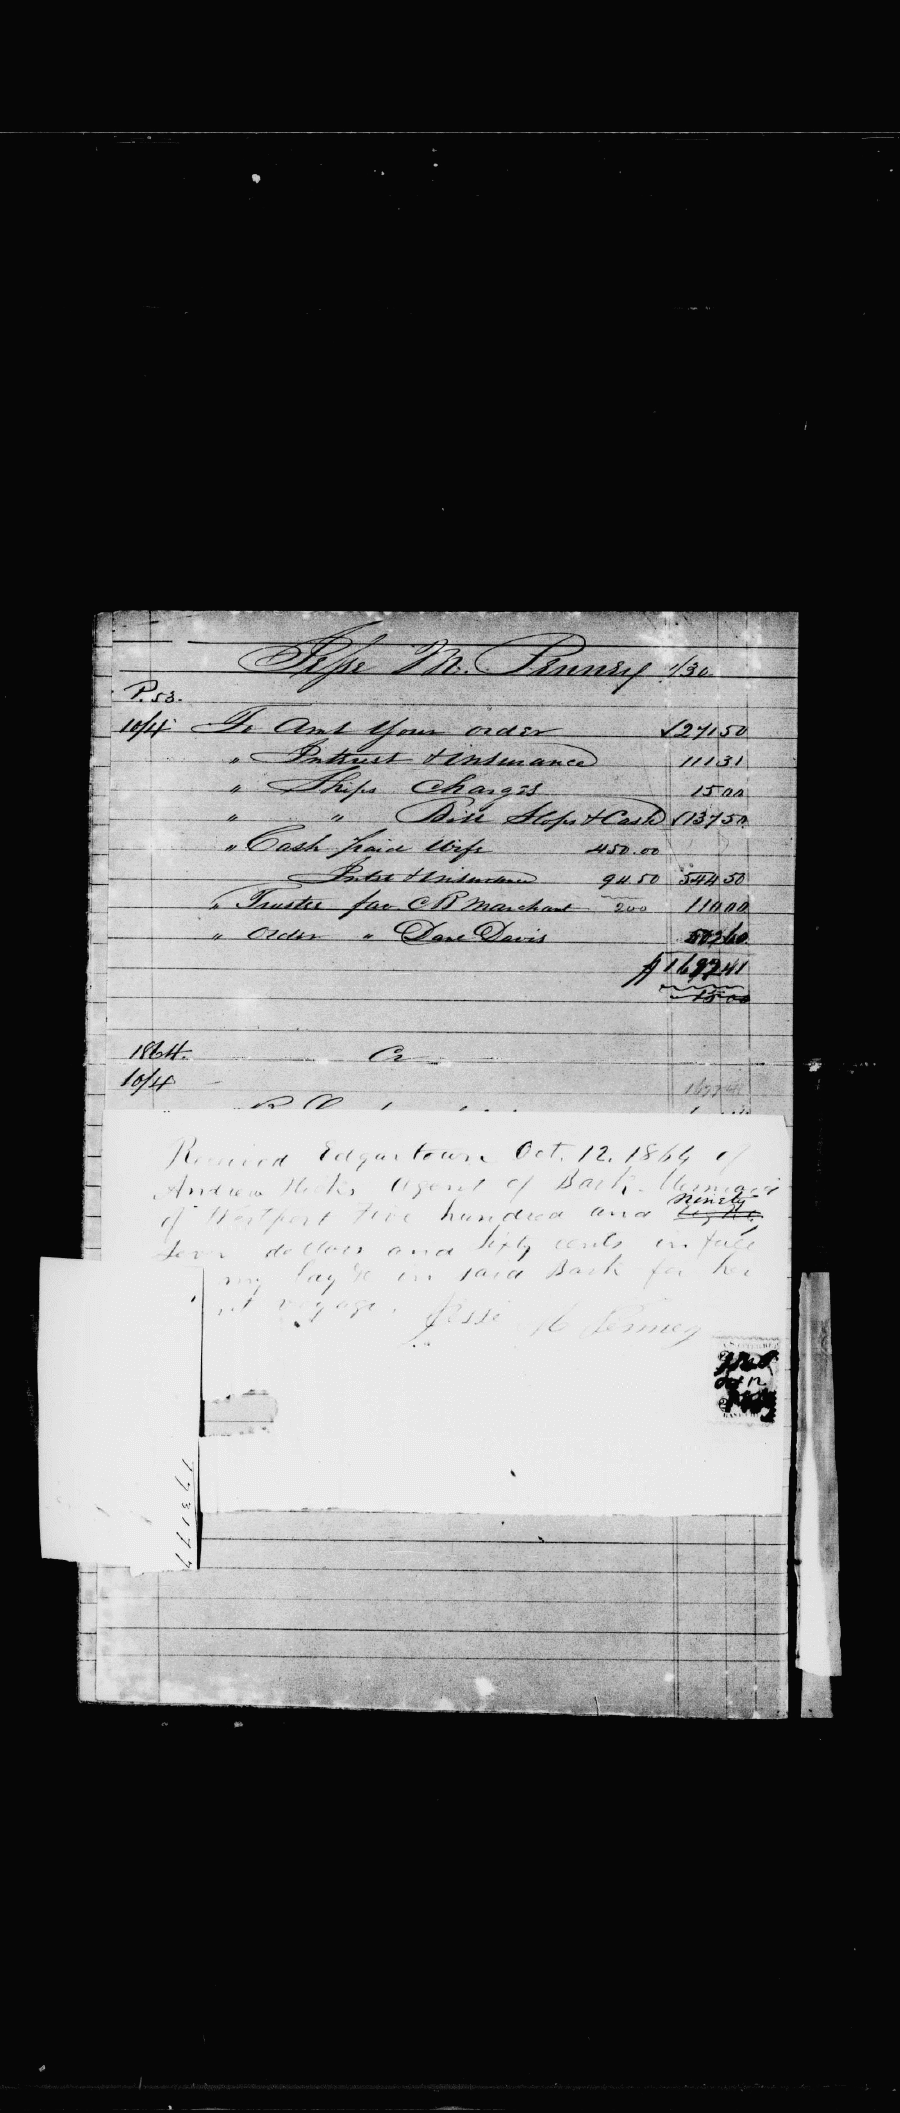 Jesse M. Penney 1/30
P. 53.
10/4 To Amt Your order √271 50
" Intrest & Insurance 111 31
" Ships Charges 15 00
" " Bill Slops & Cash √137 50
" Cash paid Wife 450.00
Intrst & Insurance 94 50 544 50
" Trustee fav C B Marchant 200 110 00
" Order " Dave Davis
1864. Cr
10/4
Received Edgartown Oct. 12. 1864 of
Andrew Hicks Agent of Bark
of Westport Five hundred and Ninety
Seven dollars and Sixty cents in full
my Lay &c in said Bark for her
voyage. Jesse M Penney